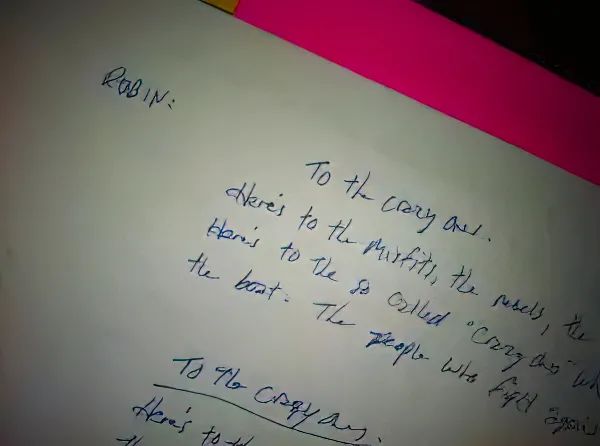 ROBIN:
To the crazy ones.
Here's to the misfits, the rebels, the
Here's to the so called "crazy ones" wh
the boat. The people who fight agains
To the Crazy Ones.
Here's to th
the